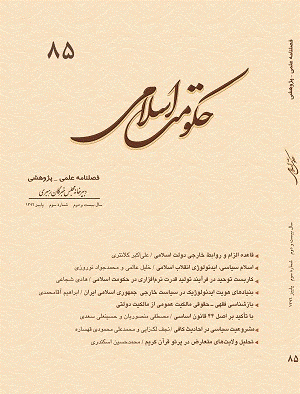 ۸۵
حکومت اسلامی
فصلنامه علمی _ پژوهشی
دبیرخانه مجلس خبرگان رهبری
سال بیست و دوم شماره سوم پاییز ۱۳۹۶
قاعده الزام و روابط خارجی دولت اسلامی / علی‌اکبر کلانتری
اسلام سیاسی، ایدئولوژی انقلاب اسلامی / خلیل عالمی و محمدجواد نوروزی
کاربست توحید در فرآیند تولید قدرت نرم‌افزاری در حکومت اسلامی / هادی شجاعی
بنیادهای هویت ایدئولوژیک در سیاست خارجی جمهوری اسلامی ایران / ابراهیم آقامحمدی
بازشناسی فقهی _ حقوقی مالکیت عمومی از مالکیت دولتی
با تأکید بر اصل ۴۴ قانون اساسی / مصطفی منصوریان و حسینعلی سعدی
مشروعیت سیاسی در احادیث کافی / نجف لک‌زایی و محمدعلی محمودی قهساره
تحلیل ولایت‌های متعارض در پرتو قرآن کریم / محمدحسین اسکندری
حکومت اسلامی
فصلنامه علمی _ پژوهشی
سال بیست و دوم شماره سوم پاییز ۱۳۹۶
۸۵